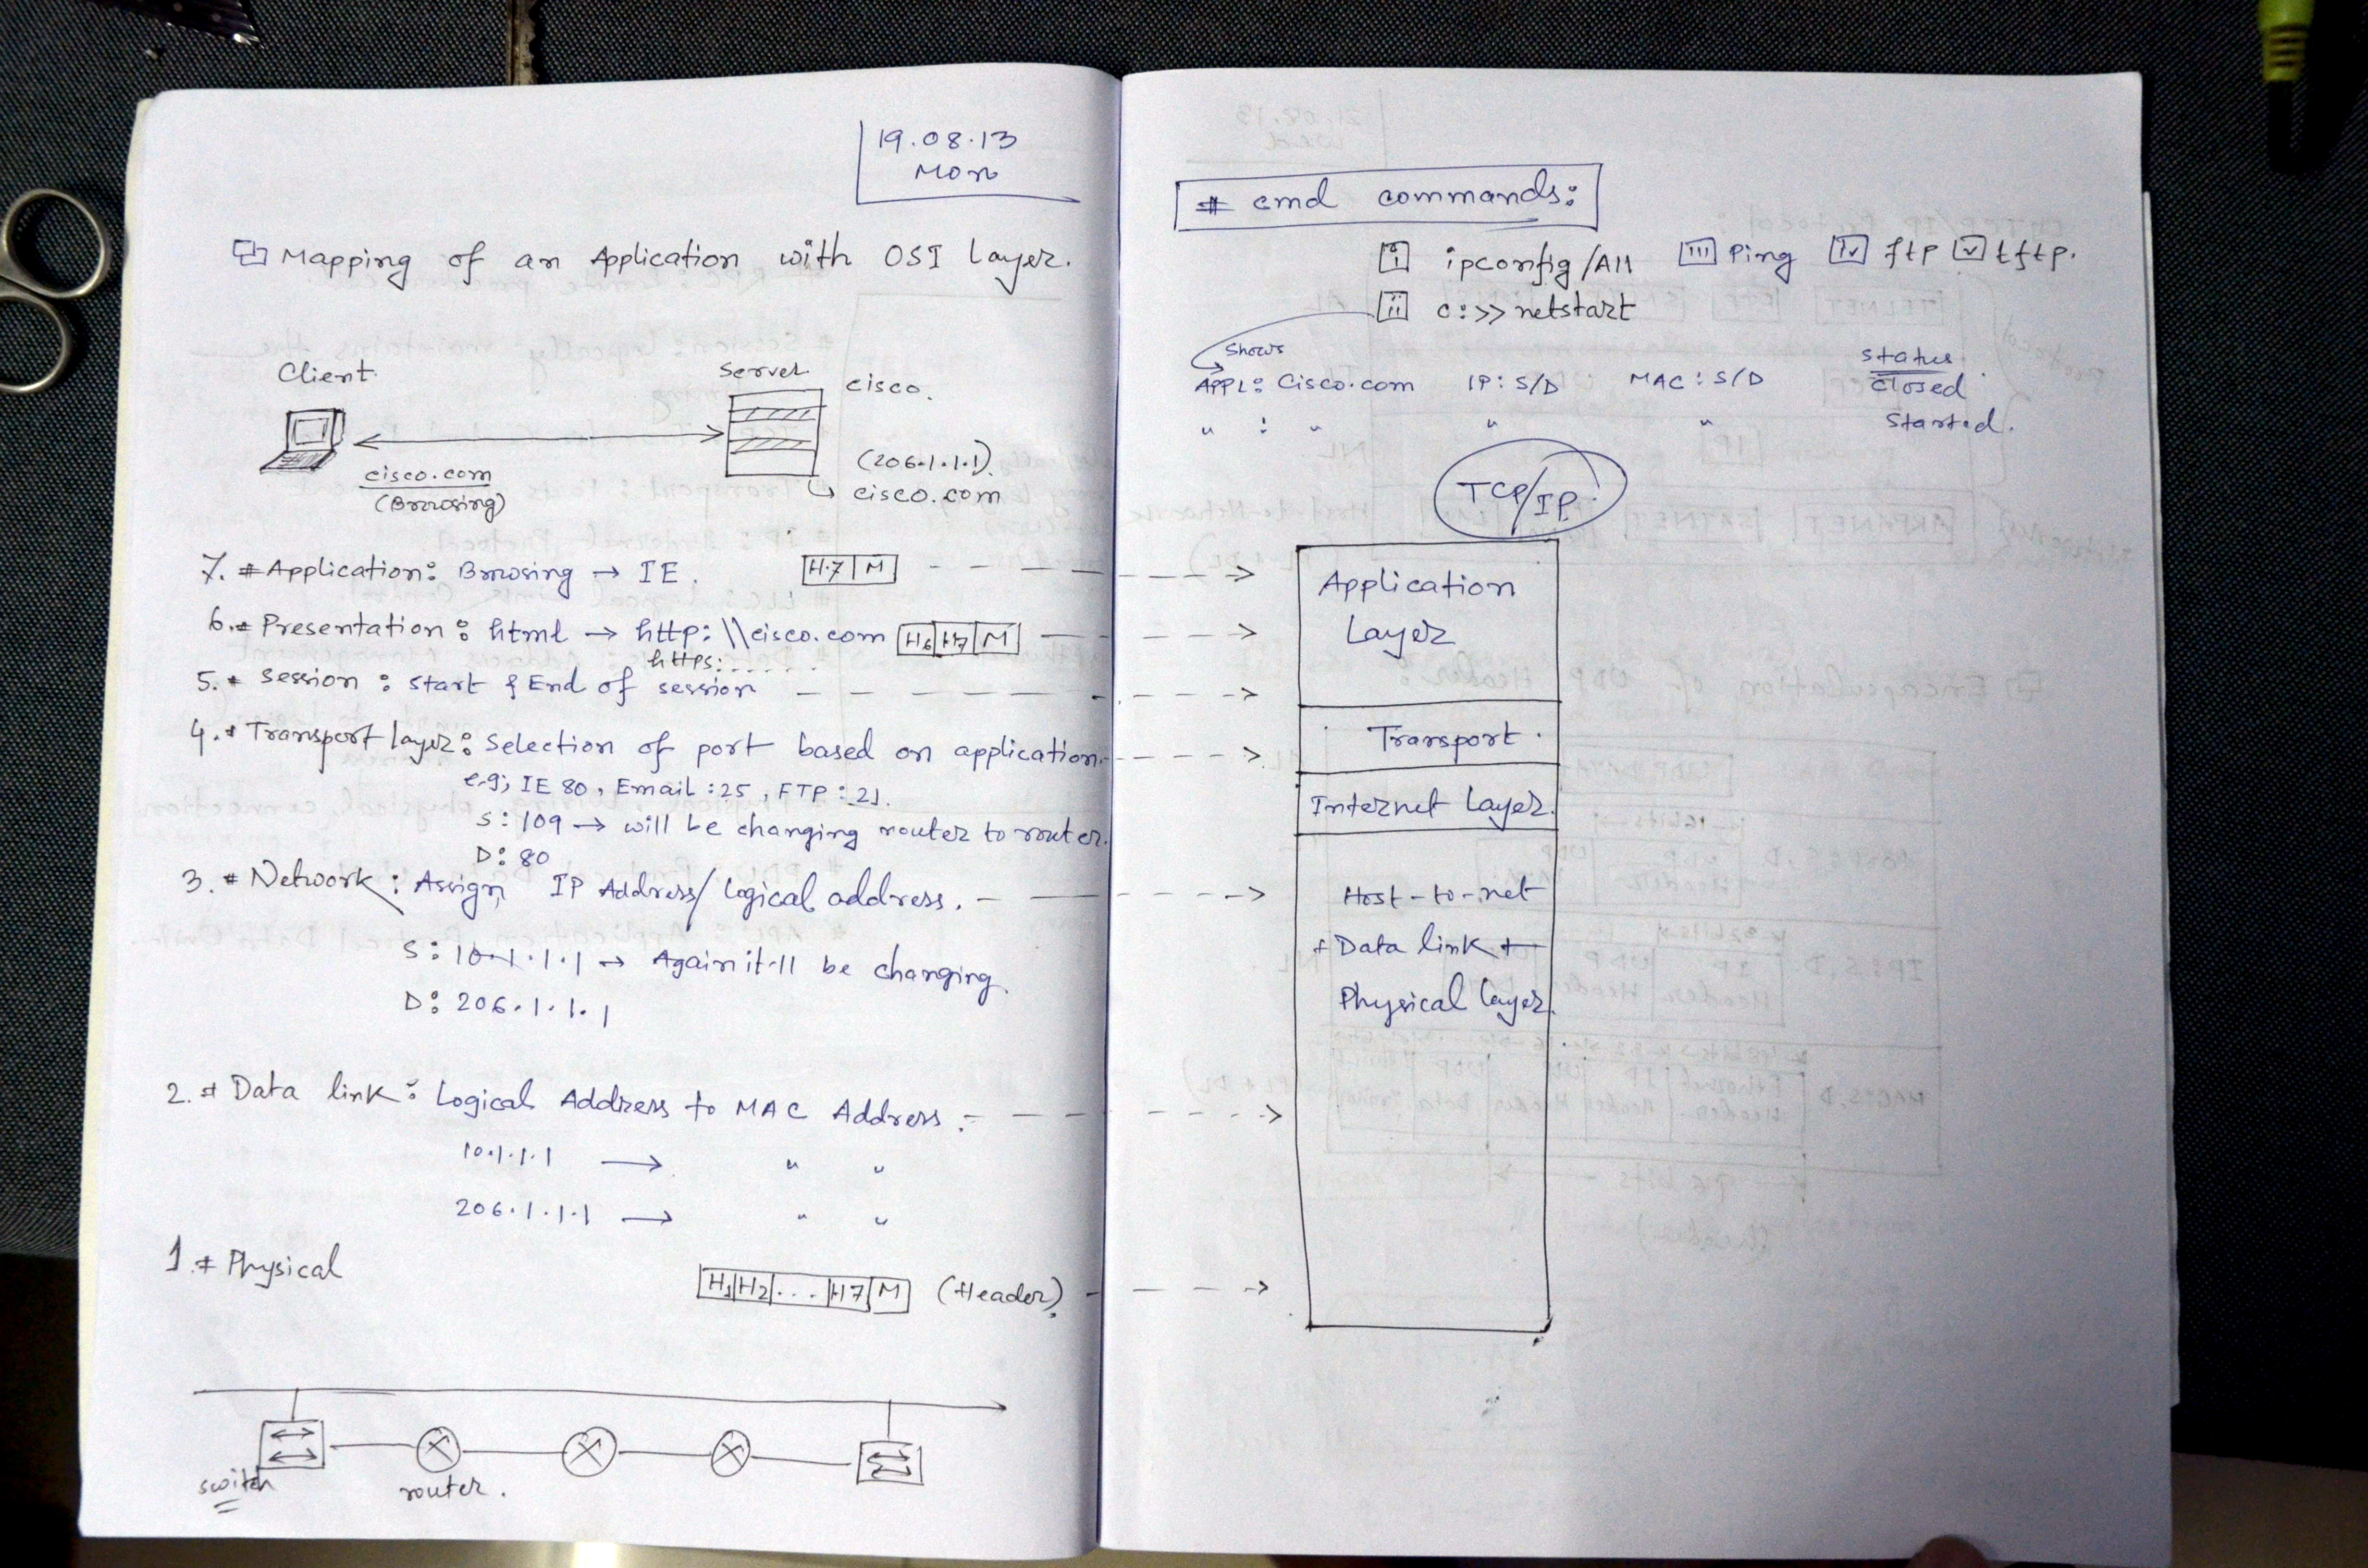 19.08.13
Mon
Mapping of an Application with OSI Layer.
Client
Server
cisco.
cisco.com
(Browsing)
(206.1.1.1).
cisco.com
7. # Application: Browsing → IE. H.7 | M
6. # Presentation: html → http:\\cisco.com H6 | H7 | M
https:......
5. # Session: Start & End of session
4. # Transport layer: Selection of port based on application.
e.g; IE 80, Email:25, FTP:21.
S: 109 → will be changing router to router.
D: 80
3. # Network: Assign IP Address/Logical address.
S: 10.1.1.1 → Again it'll be changing.
D: 206.1.1.1
2. # Data link: Logical Address to MAC Address.
10.1.1.1 → " "
206.1.1.1 → " "
1. # Physical
H1 | H2 | ... | H7 | M (Header).
switch
router.
# cmd commands:
i ipconfig/All iii Ping iv ftp v tftp.
ii c:>> netstart
Shows
APPL: Cisco.com IP: S/D MAC: S/D status
closed
" : " " " Started.
TCP/IP.
Application
Layer
Transport
Internet Layer.
Host-to-net
+ Data link +
Physical layer.